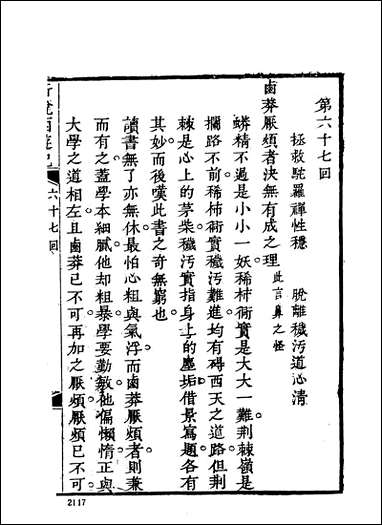 第六十七回
拯救駝羅禪性穩 脫離穢汚道心清
鹵莽厭煩者決無有成之理 此言鼻之怪
蟒精不過是小小一妖稀柿衕實是大大一難荆棘嶺是
攔路不前稀柿衕實穢汚難進均有碍西天之道路但荆
棘是心上的茅柴穢汚實指身上的塵垢借景寫題各有
其妙而後嘆此書之奇無窮也
讀書無了亦無休最怕心粗與氣浮而鹵莽厭煩者則兼
而有之蓋學本細膩他却粗暴學要勤敏他偏懶惰正與
大學之道相左且鹵莽已不可再加之厭煩厭煩已不可
六十七回
2117